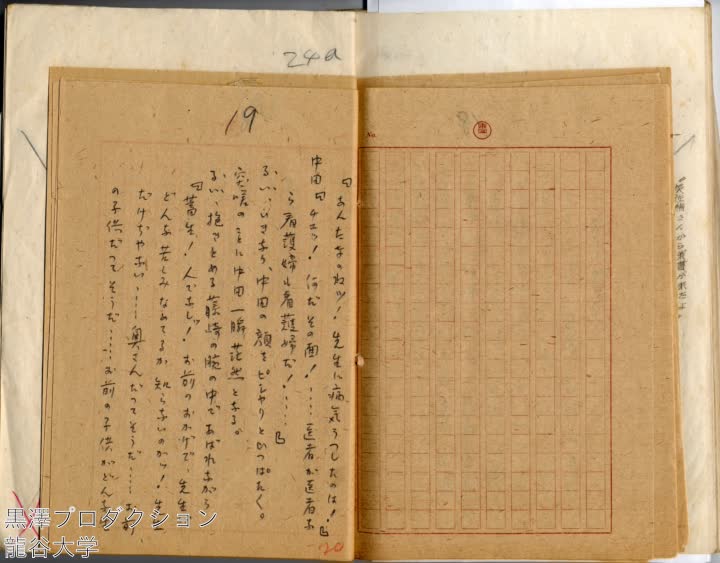 24a
19
「あんたなのねッ!先生に病気うつしたのは!」
中田「チェッ!何だその面!……医者が医者な
ら看護婦も看護婦だ!……」
るい、いきなり、中田の顔をピシヤリとひつぱたく。
突嗟のことに中田一瞬茫然となる。
るい、抱きとめる藤崎の腕の中であばれながら
「畜生!人でなしッ!お前のおかげで、先生
どんな苦しみなめてるか知らないのかッ!先生
だけぢやない……奥さんだつてそうだ……お前
の子供だつてそうだ……お前の子供がどんな
20
No.
黒澤プロダクション
龍谷大学